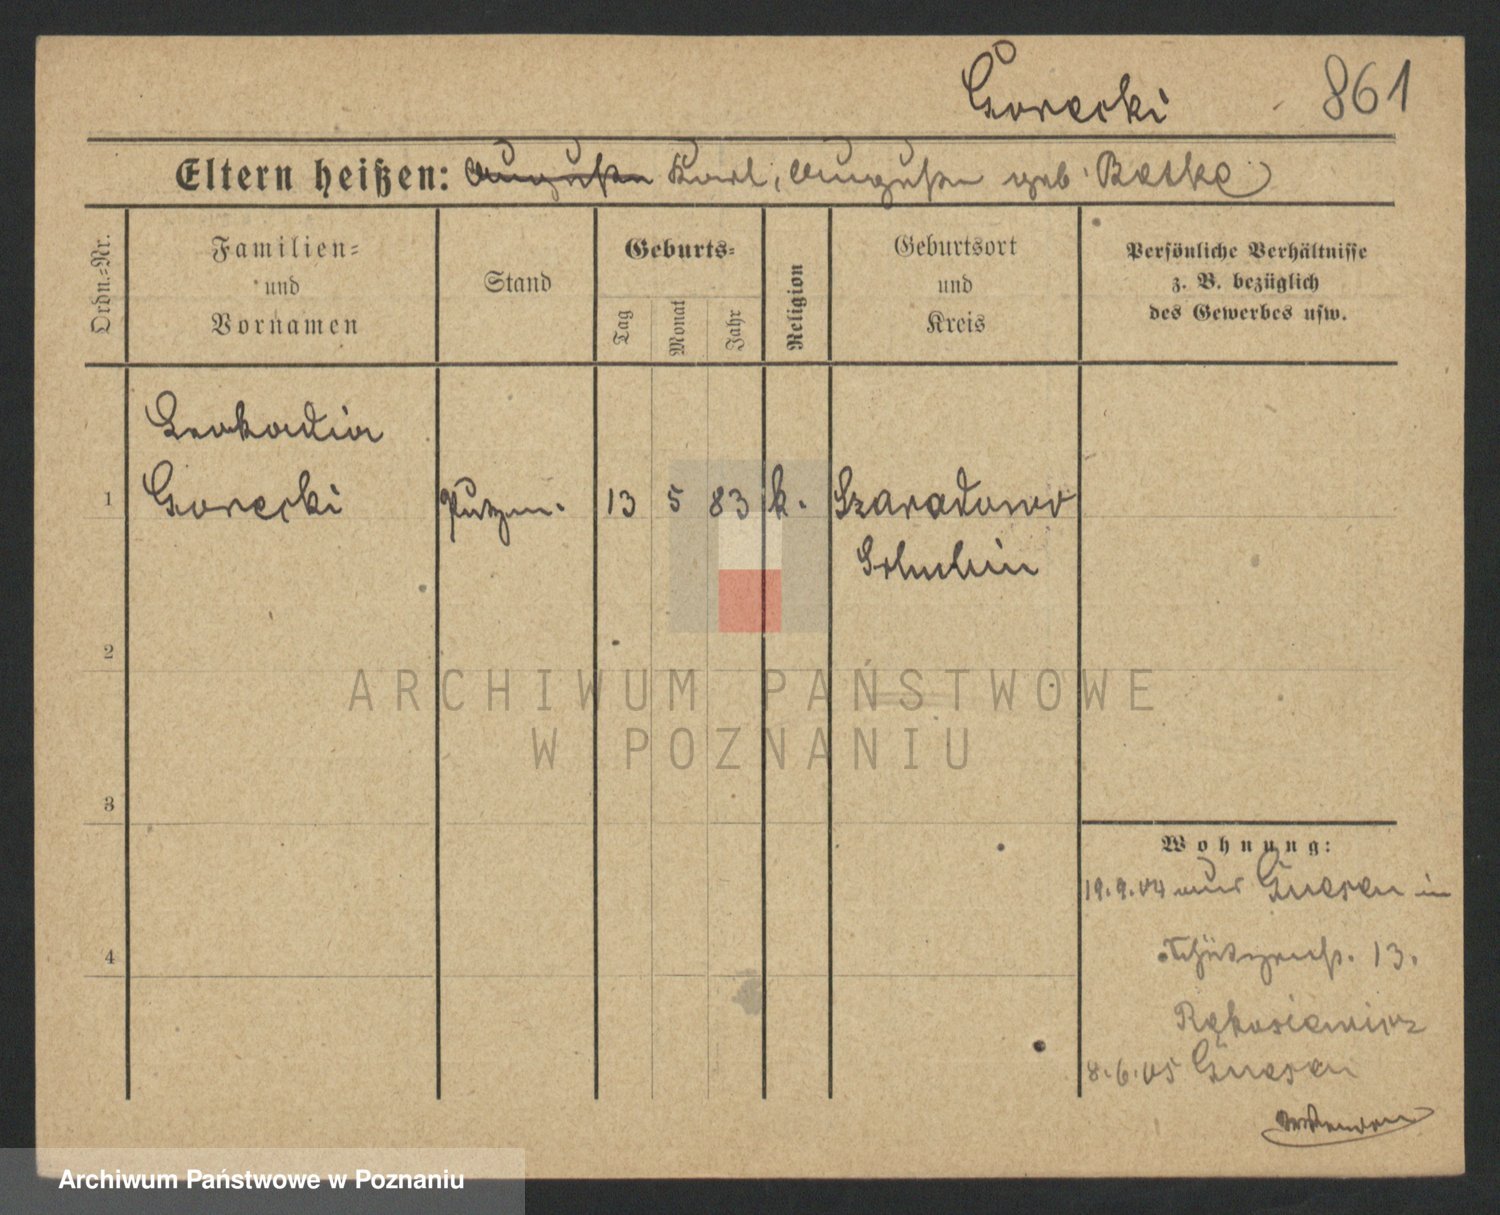 Gorecki 861
Eltern heißen: Auguste Karl, Auguste geb. Betke
Ordn.-Nr.
Familien-
und
Vornamen
Stand
Geburts-
Tag
Monat
Jahr
Religion
Geburtsort
und
Kreis
Persönliche Verhältnisse
z. B. bezüglich
des Gewerbes usw.
Leokadia
1 Gorecki Putzm. 13 5 83 k. Szaradowo
Schubin
2
ARCHIWUM PAŃSTWOWE
W POZNANIU
3
Wohnung:
19.9.04 aus Gnesen in
4
Schützenstr. 13.
8.6.05 Gnesen
Archiwum Państwowe w Poznaniu